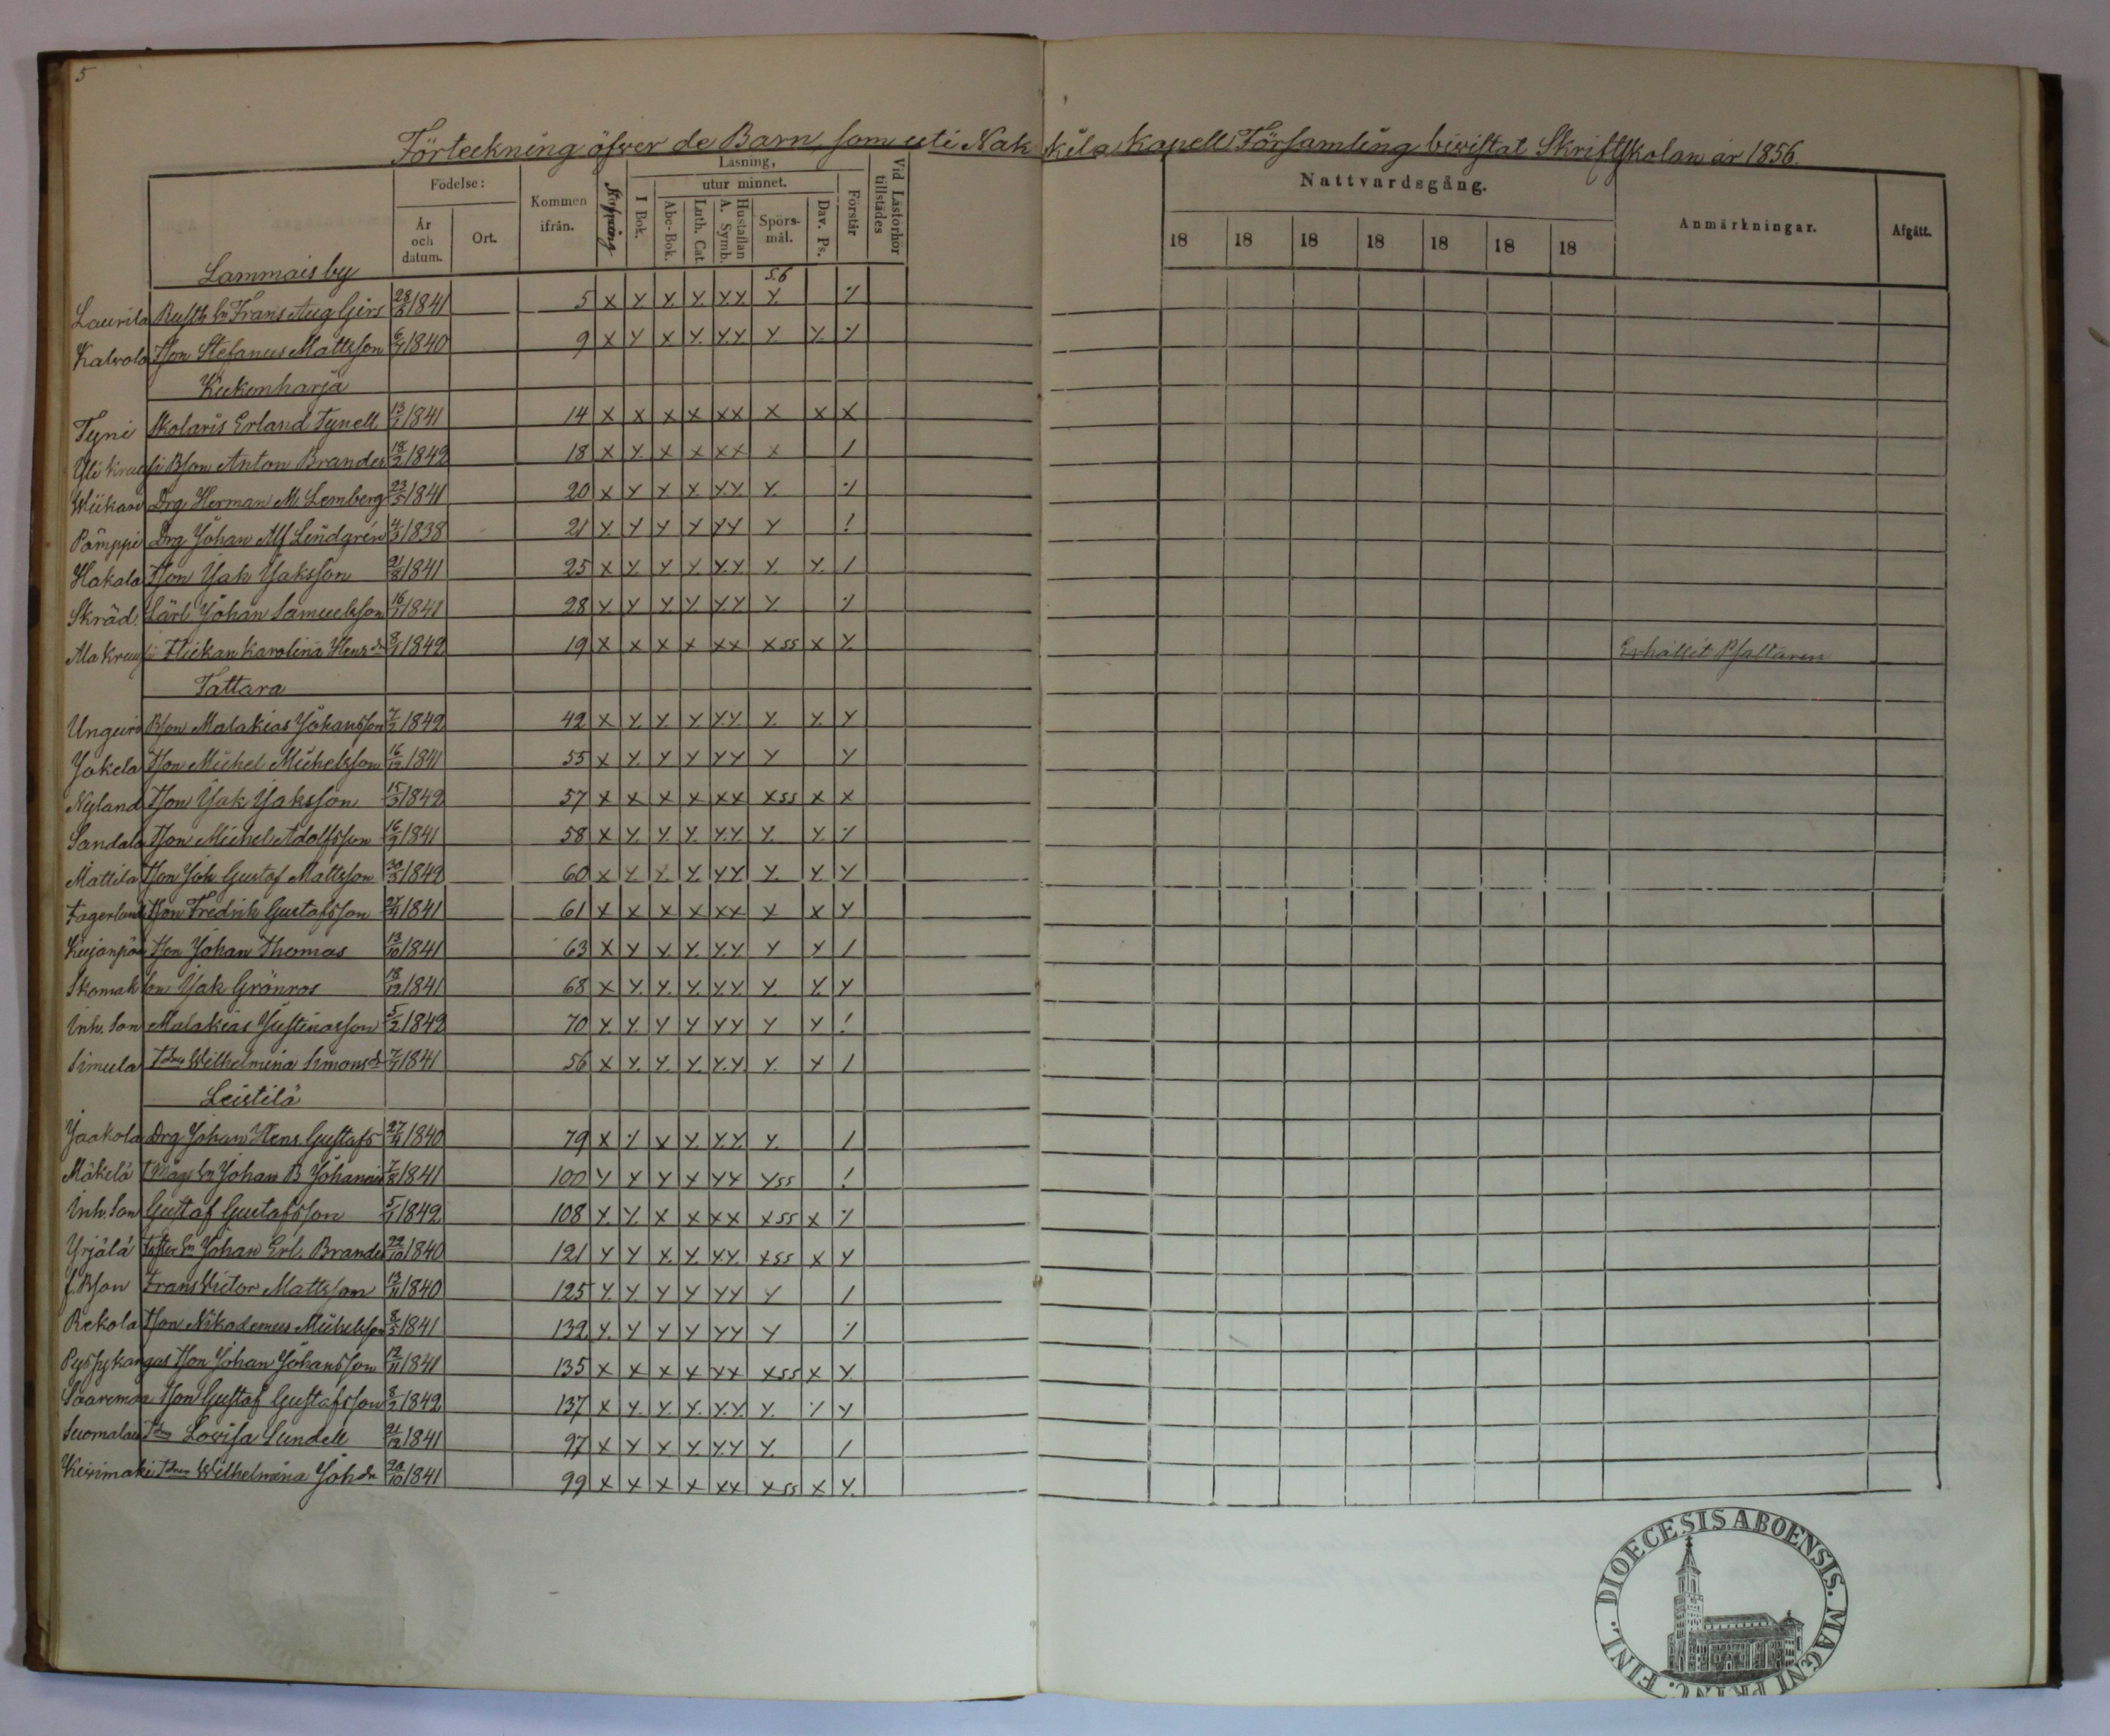 5
Förteckning öfver de Barn, som uti Nakkila Kapell Församling bivistat Skriftskolan år 1856.
Födelse:
År och datum.
Ort.
Kommen ifrån.
Stafning
Läsning,
I Bok.
utur minnet.
Abc-Bok.
Luth. Cat.
Hustaflan A. Symb.
Spörsmål.
Dav. Ps.
Förstår
Vid Läsförhör tillstädes
Nattvardsgång.
18 18 18 18 18 18 18
Anmärkningar.
Afgått.
Lammais by 5.6
Laurila Rusth Sn Frans Aug Girs 28/8 1841 5 x y y y y y y ⁒
Kalvola Tson Stefanus Mattsson 6/7 1840 9 x y x y y y y y ⁒
Kukonharja
Tyni Skolaris Erland Tynell 13/1 1841 14 x x x x x x x x x
Yli krausi Bson Anton Brander 18/2 1842 18 x y x x x x x /
Wiikari Drg Herman M. Lemberg 23/5 1841 20 x y y x y y y ⁒
Pämppi Drg Johan Alf Lindgrén 4/3 1838 21 y y y y y y y !
Hakala Tson Jak Jaksson 21/8 1841 25 x y y y y y y y /
Skräd. Lärl. Johan Samuelsson 16/1 1841 28 y y y y y y y ⁒
Ala krausi Flickan Karolina Hensdr 8/1 1842 19 x x x x x x x ss x y Erhållit Psaltaren
Tattara
Bson Malakias Johansson 7/2 1842 42 x y y y y y y y y
Jokela Tson Michel Michelsson 16/12 1841 55 x y y y y y y y
Nyland Tson Jak Jaksson 15/3 1842 57 x x x x x x x ss x x
Sandala Tson Michel Adolfsson 16/9 1841 58 x y y y y y y y ⁒
Mattila Tson Joh Gustaf Mattsson 30/3 1842 60 x y y y y y y y y
Fagerlund Tson Fredrik Gustafsson 27/4 1841 61 x x x x x x x x y
Kujanpää Tson Johan Thomas 13/10 1841 63 x y y y y y y y /
Skomak son Jak Grönros 18/12 1841 68 x y y y y y y y y
Inh. Son Malakias Justinasson 5/2 1842 70 y y y y y y y y !
Simula Tdr Wilhelmina Simonsdr 7/7 1841 56 x y y y y y y y /
Leistilä
Jaakola Drg Johan Hens. Gustafs 27/4 1840 79 x ⁒ x y y y y /
Mäkelä Måg Sn Johan B Johannis 7/8 1841 100 y y y x y y y ss !
Inh. Son Gustaf Gustafsson 5/1 1842 108 y y x x x x x ss x ⁒
Yrjälä Sn Johan Erl. Brander 22/10 1840 121 y y x y x y x ss x y
f. Bson Frans Victor Mattsson 13/11 1840 125 y y y y y y y /
Rekola Tson Nikodemus Michelsson 8/5 1841 132 y y y y y y y ⁒
Pyssykangas Tson Johan Johansson 12/11 1841 135 x x x x x x x ss x y
Saarenmaa Tson Gustaf Gustafsson 8/2 1842 137 x y y y y y y ⁒ y
Suomalais Tdr Lovisa Sundell 21/12 1841 97 x y x y y y y /
Kivimäki Tdr Wilhelmina Johdr 20/10 1841 99 x x x x x x x ss x y
DIOECESIS ABOENSIS. MAGNI PRINC. FINL.